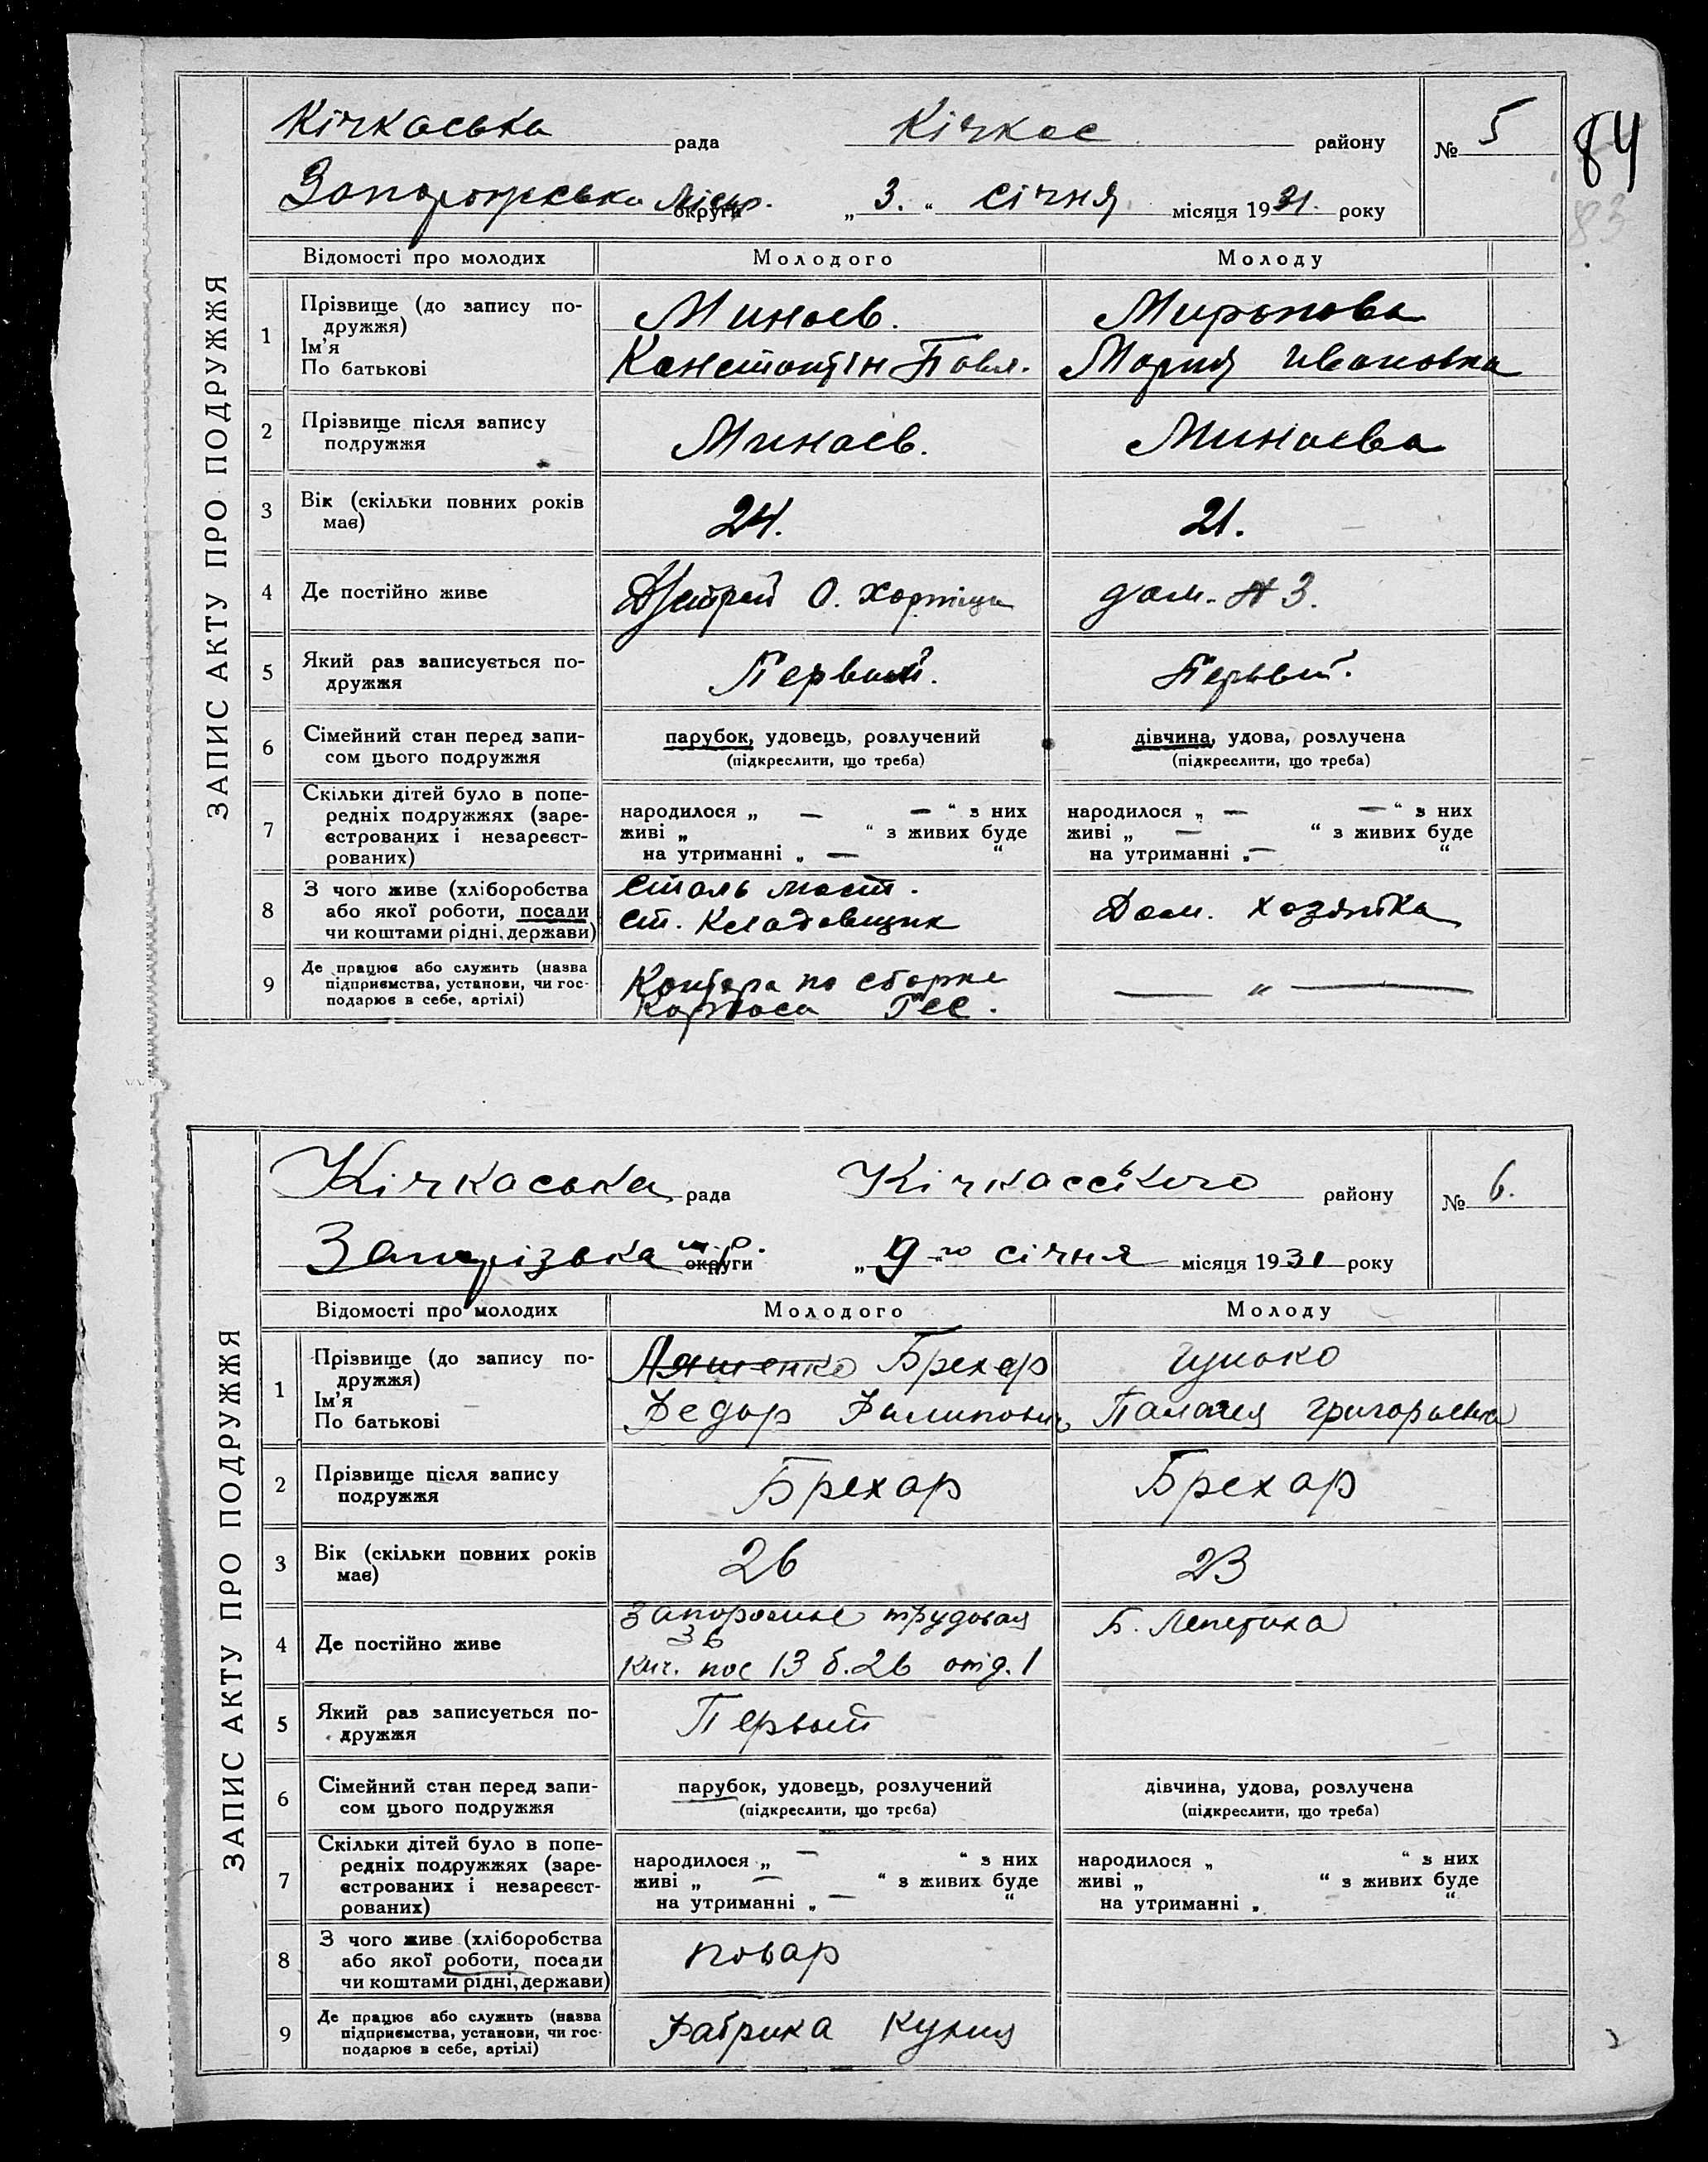 Кічкаська рада Кічкас району № 5
84
83
Запорожська Міськ. округи „ 3. “ січня місяця 1931. року
ЗАПИС АКТУ ПРО ПОДРУЖЖЯ
Відомості про молодих Молодого Молоду
1 Прізвище (до запису по-
дружжя)
Ім'я
По батькові
Минаев. Миронова
Константін Павл. Мария Ивановна
2 Прізвище після запису
подружжя
Минаєв. Минаева
3 Вік (скільки повних років
має)
24. 21.
4 Де постійно живе О. Хортица дом. № 3.
5 Який раз записується по-
дружжя
Первый. Первый.
6 Сімейний стан перед запи-
сом цього подружжя
парубок, удовець, розлучений
(підкреслити, що треба)
дівчина, удова, розлучена
(підкреслити, що треба)
7 Скільки дітей було в попе-
редніх подружжях (заре-
єстрованих і незареєст-
рованих)
народилося „ — — “ з них
живі „ “ з живих буде
на утриманні „ — “
народилося „ — — “ з них
живі „ — “ з живих буде
на утриманні „ — “
8 З чого живе (хліборобства
або якої роботи, посади
чи коштами рідні, держави)
Сталь мост.
ст. Кладовщик
Дом. хозяйка
9 Де працює або служить (назва
підприємства, установи, чи гос-
подарює в себе, артілі)
Контора по сборке
Корпоса Гес.
— „ —
Кічкаська рада Кічкасського району № 6.
Запрізька м. р. округи „ 9 “ го січня місяця 1931 року
ЗАПИС АКТУ ПРО ПОДРУЖЖЯ
Відомості про молодих Молодого Молоду
1 Прізвище (до запису по-
дружжя)
Ім'я
По батькові
Ляшенко Брехар
Федор Филипович Палагея Григорьевна
2 Прізвище після запису
подружжя
Брехар Брехар
3 Вік (скільки повних років
має)
26 23
4 Де постійно живе
Запорожье трудовая
36
Кич. пос 13 б. 26 отд. 1
Б. Лепетиха
5 Який раз записується по-
дружжя
Первый
6 Сімейний стан перед запи-
сом цього подружжя
парубок, удовець, розлучений
(підкреслити, що треба)
дівчина, удова, розлучена
(підкреслити, що треба)
7 Скільки дітей було в попе-
редніх подружжях (заре-
єстрованих і незареєст-
рованих)
народилося „ — “ з них
живі „ — “ з живих буде
на утриманні „ — “
народилося „ “ з них
живі „ “ з живих буде
на утриманні „ “
8 З чого живе (хліборобства
або якої роботи, посади
чи коштами рідні, держави)
повар
9 Де працює або служить (назва
підприємства, установи, чи гос-
подарює в себе, артілі)
Фабрика Кухня